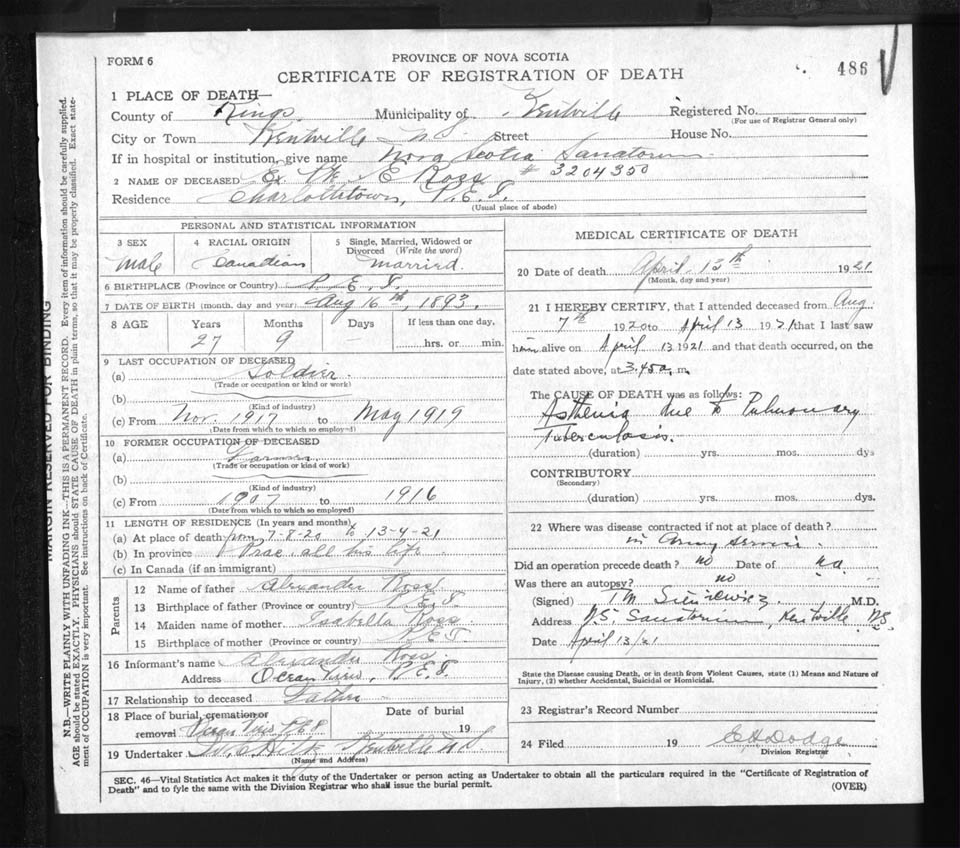 FORM 6
PROVINCE OF NOVA SCOTIA
CERTIFICATE OF REGISTRATION OF DEATH
486
1 PLACE OF DEATH—
County of Kings Municipality of Kentville Registered No.
(For use of Registrar General only)
City or Town Kentville N S Street House No.
If in hospital or institution, give name Nova Scotia Sanatorium
2 NAME OF DECEASED Ex. Pte E Ross # 3204350
Residence Charlottetown, P.E.I.
(Usual place of abode)
PERSONAL AND STATISTICAL INFORMATION
3 SEX
Male
4 RACIAL ORIGIN
Canadian
5 Single, Married, Widowed or Divorced (Write the word)
Married.
6 BIRTHPLACE (Province or Country) P. E. I.
7 DATE OF BIRTH (month, day and year) Aug 16th, 1893.
8 AGE Years Months Days If less than one day,
27 9 — hrs. or min.
9 LAST OCCUPATION OF DECEASED
(a) Soldier.
(Trade or occupation or kind or work)
(b)
(Kind of industry)
(c) From Nov. 1917 to May 1919
(Date from which to which so employed)
10 FORMER OCCUPATION OF DECEASED
(a) Farmer
(Trade or occupation or kind of work)
(b)
(Kind of industry)
(c) From 1907 to 1916
(Date from which to which so employed)
11 LENGTH OF RESIDENCE (In years and months)
(a) At place of death from 7-8-20 to 13-4-21
(b) In province Prac. all his life
(c) In Canada (if an immigrant)
Parents
12 Name of father Alexander Ross
13 Birthplace of father (Province or country) P E I
14 Maiden name of mother Isabella Ross
15 Birthplace of mother (Province or country) P E I
16 Informant's name Alexander Ross.
Address Ocean View, P.E.I.
17 Relationship to deceased Father
18 Place of burial, cremation or removal Ocean View P.E.I Date of burial 19
19 Undertaker Kentville N S
(Name and Address)
MEDICAL CERTIFICATE OF DEATH
20 Date of death April 13th 1921
(Month, day and year)
21 I HEREBY CERTIFY, that I attended deceased from Aug.
7th 1920 to April 13 1921 that I last saw
him alive on April 13 1921 and that death occurred, on the
date stated above, at 3.45 a. m.
The CAUSE OF DEATH was as follows:
Asthenia due to Pulmonary
Tuberculosis.
(duration) yrs. mos. dys
CONTRIBUTORY
(Secondary)
(duration) yrs. mos. dys.
22 Where was disease contracted if not at place of death?
in Army service.
Did an operation precede death? no Date of na
Was there an autopsy? no
(Signed) M.D.
Address N.S. Sanatorium, Kentville N.S.
Date April 13/21
State the Disease causing Death, or in death from Violent Causes, state (1) Means and Nature of
Injury, (2) whether Accidental, Suicidal or Homicidal.
23 Registrar's Record Number
24 Filed 19 Dodge
Division Registrar
SEC. 46—Vital Statistics Act makes it the duty of the Undertaker or person acting as Undertaker to obtain all the particulars required in the "Certificate of Registration of
Death" and to fyle the same with the Division Registrar who shall issue the burial permit.
(OVER)
MARGIN RESERVED FOR BINDING
N.B.—WRITE PLAINLY WITH UNFADING INK—THIS IS A PERMANENT RECORD. Every item of information should be carefully supplied.
AGE should be stated EXACTLY. PHYSICIANS should STATE CAUSE OF DEATH in plain terms, so that it may be properly classified. Exact statement of OCCUPATION is very important. See instructions on back of Certificate.